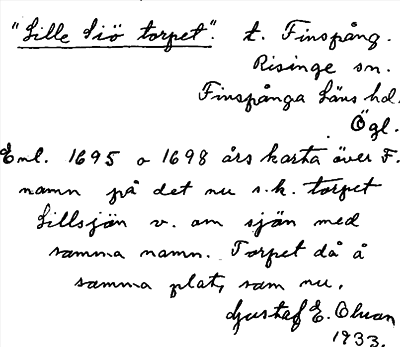 "Lille Siö torpet". t. Finspång.
Risinge sn.
Finspånga Läns hd.
Ögl.
Enl. 1695 o 1698 års karta över F.
namn på det nu s.k. torpet
Lillsjön v. om sjön med
samma namn. Torpet då å
samma plats som nu.
Gustaf E. Olsson
1933.